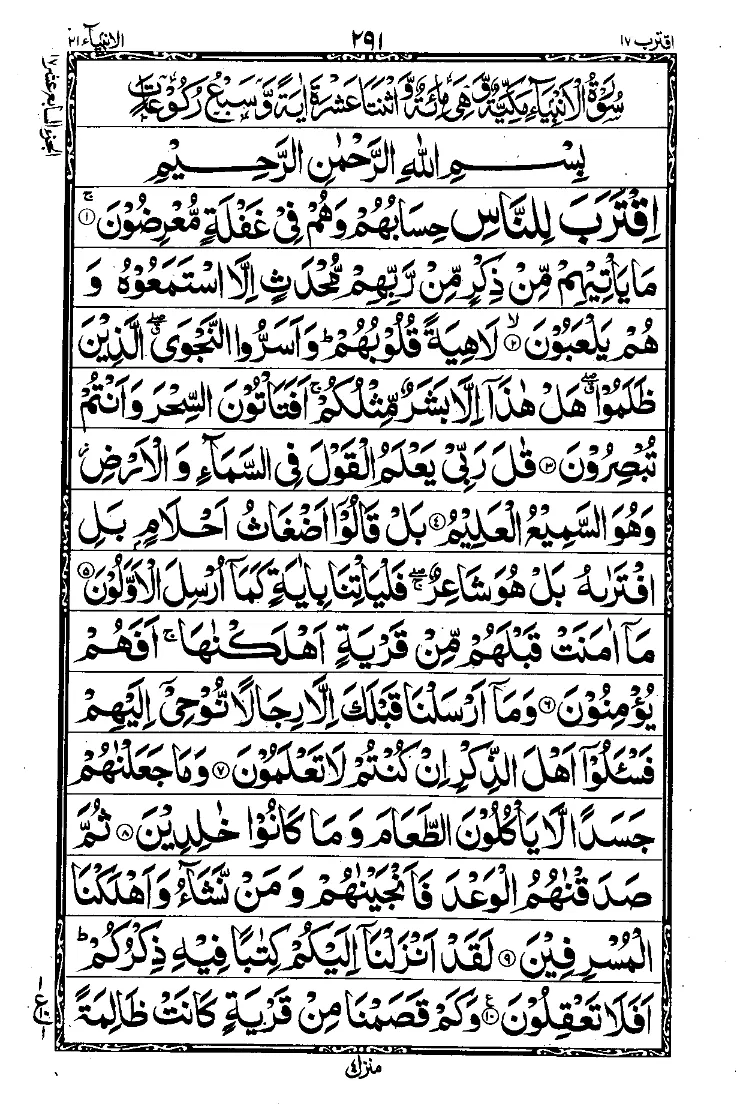 اقترب ١٧
٢٩١
الانبیآء ٢١
الجزء السابع عشر ١٧
سُوْرَةُ الْاَنْۢبِيَآءِ مَكِّيَّةٌ وَّهِىَ مِائَةٌ وَّ اثْنَتَا عَشْرَةَ اٰيَةً وَّ سَبْعُ رُكُوْعَاتٍ
بِسْمِ اللهِ الرَّحْمٰنِ الرَّحِيْمِ
اِقْتَرَبَ لِلنَّاسِ حِسَابُهُمْ وَهُمْ فِىْ غَفْلَةٍ مُّعْرِضُوْنَ ۚ‏ ﴿۱﴾
مَا يَاْتِيْهِمْ مِّنْ ذِكْرٍ مِّنْ رَّبِّهِمْ مُّحْدَثٍ اِلَّا اسْتَمَعُوْهُ وَ
هُمْ يَلْعَبُوْنَ ۙ‏ ﴿۲﴾ لَاهِيَةً قُلُوْبُهُمْ‌ ؕ وَاَسَرُّوا النَّجْوَى ۖ ق الَّذِيْنَ
ظَلَمُوْا ۖ ق هَلْ هٰذَاۤ اِلَّا بَشَرٌ مِّثْلُكُمْ‌ ۚ اَفَتَاْتُوْنَ السِّحْرَ وَاَنْتُمْ
تُبْصِرُوْنَ‏ ﴿۳﴾ قٰلَ رَبِّىْ يَعْلَمُ الْقَوْلَ فِى السَّمَآءِ وَ الْاَرْضِ ز
وَهُوَ السَّمِيْعُ الْعَلِيْمُ‏ ﴿۴﴾ بَلْ قَالُوْۤا اَضْغَاثُ اَحْلَامٍۢ بَلِ
افْتَرٰىهُ بَلْ هُوَ شَاعِرٌ ‌ۖۚ فَلْيَاْتِنَا بِاٰيَةٍ كَمَاۤ اُرْسِلَ الْاَوَّلُوْنَ‏ ﴿۵﴾
مَاۤ اٰمَنَتْ قَبْلَهُمْ مِّنْ قَرْيَةٍ اَهْلَكْنٰهَا‌ ۚ اَفَهُمْ
يُؤْمِنُوْنَ‏ ﴿۶﴾ وَمَاۤ اَرْسَلْنَا قَبْلَكَ اِلَّا رِجَالًا نُّوْحِىْۤ اِلَيْهِمْ
فَسْئَلُوْۤا اَهْلَ الذِّكْرِ اِنْ كُنْتُمْ لَا تَعْلَمُوْنَ‏ ﴿۷﴾ وَمَا جَعَلْنٰهُمْ
جَسَدًا لَّا يَاْكُلُوْنَ الطَّعَامَ وَ مَا كَانُوْا خٰلِدِيْنَ‏ ﴿۸﴾ ثُمَّ
صَدَقْنٰهُمُ الْوَعْدَ فَاَنْجَيْنٰهُمْ وَ مَنْ نَّشَآءُ وَاَهْلَكْنَا
الْمُسْرِفِيْنَ‏ ﴿۹﴾ لَقَدْ اَنْزَلْنَاۤ اِلَيْكُمْ كِتٰبًا فِيْهِ ذِكْرُكُمْ‌ ؕ
اَفَلَا تَعْقِلُوْنَ ع‏ ﴿۱۰﴾ وَكَمْ قَصَمْنَا مِنْ قَرْيَةٍ كَانَتْ ظَالِمَةً
١ ع ١٠ ١
منزل ٤